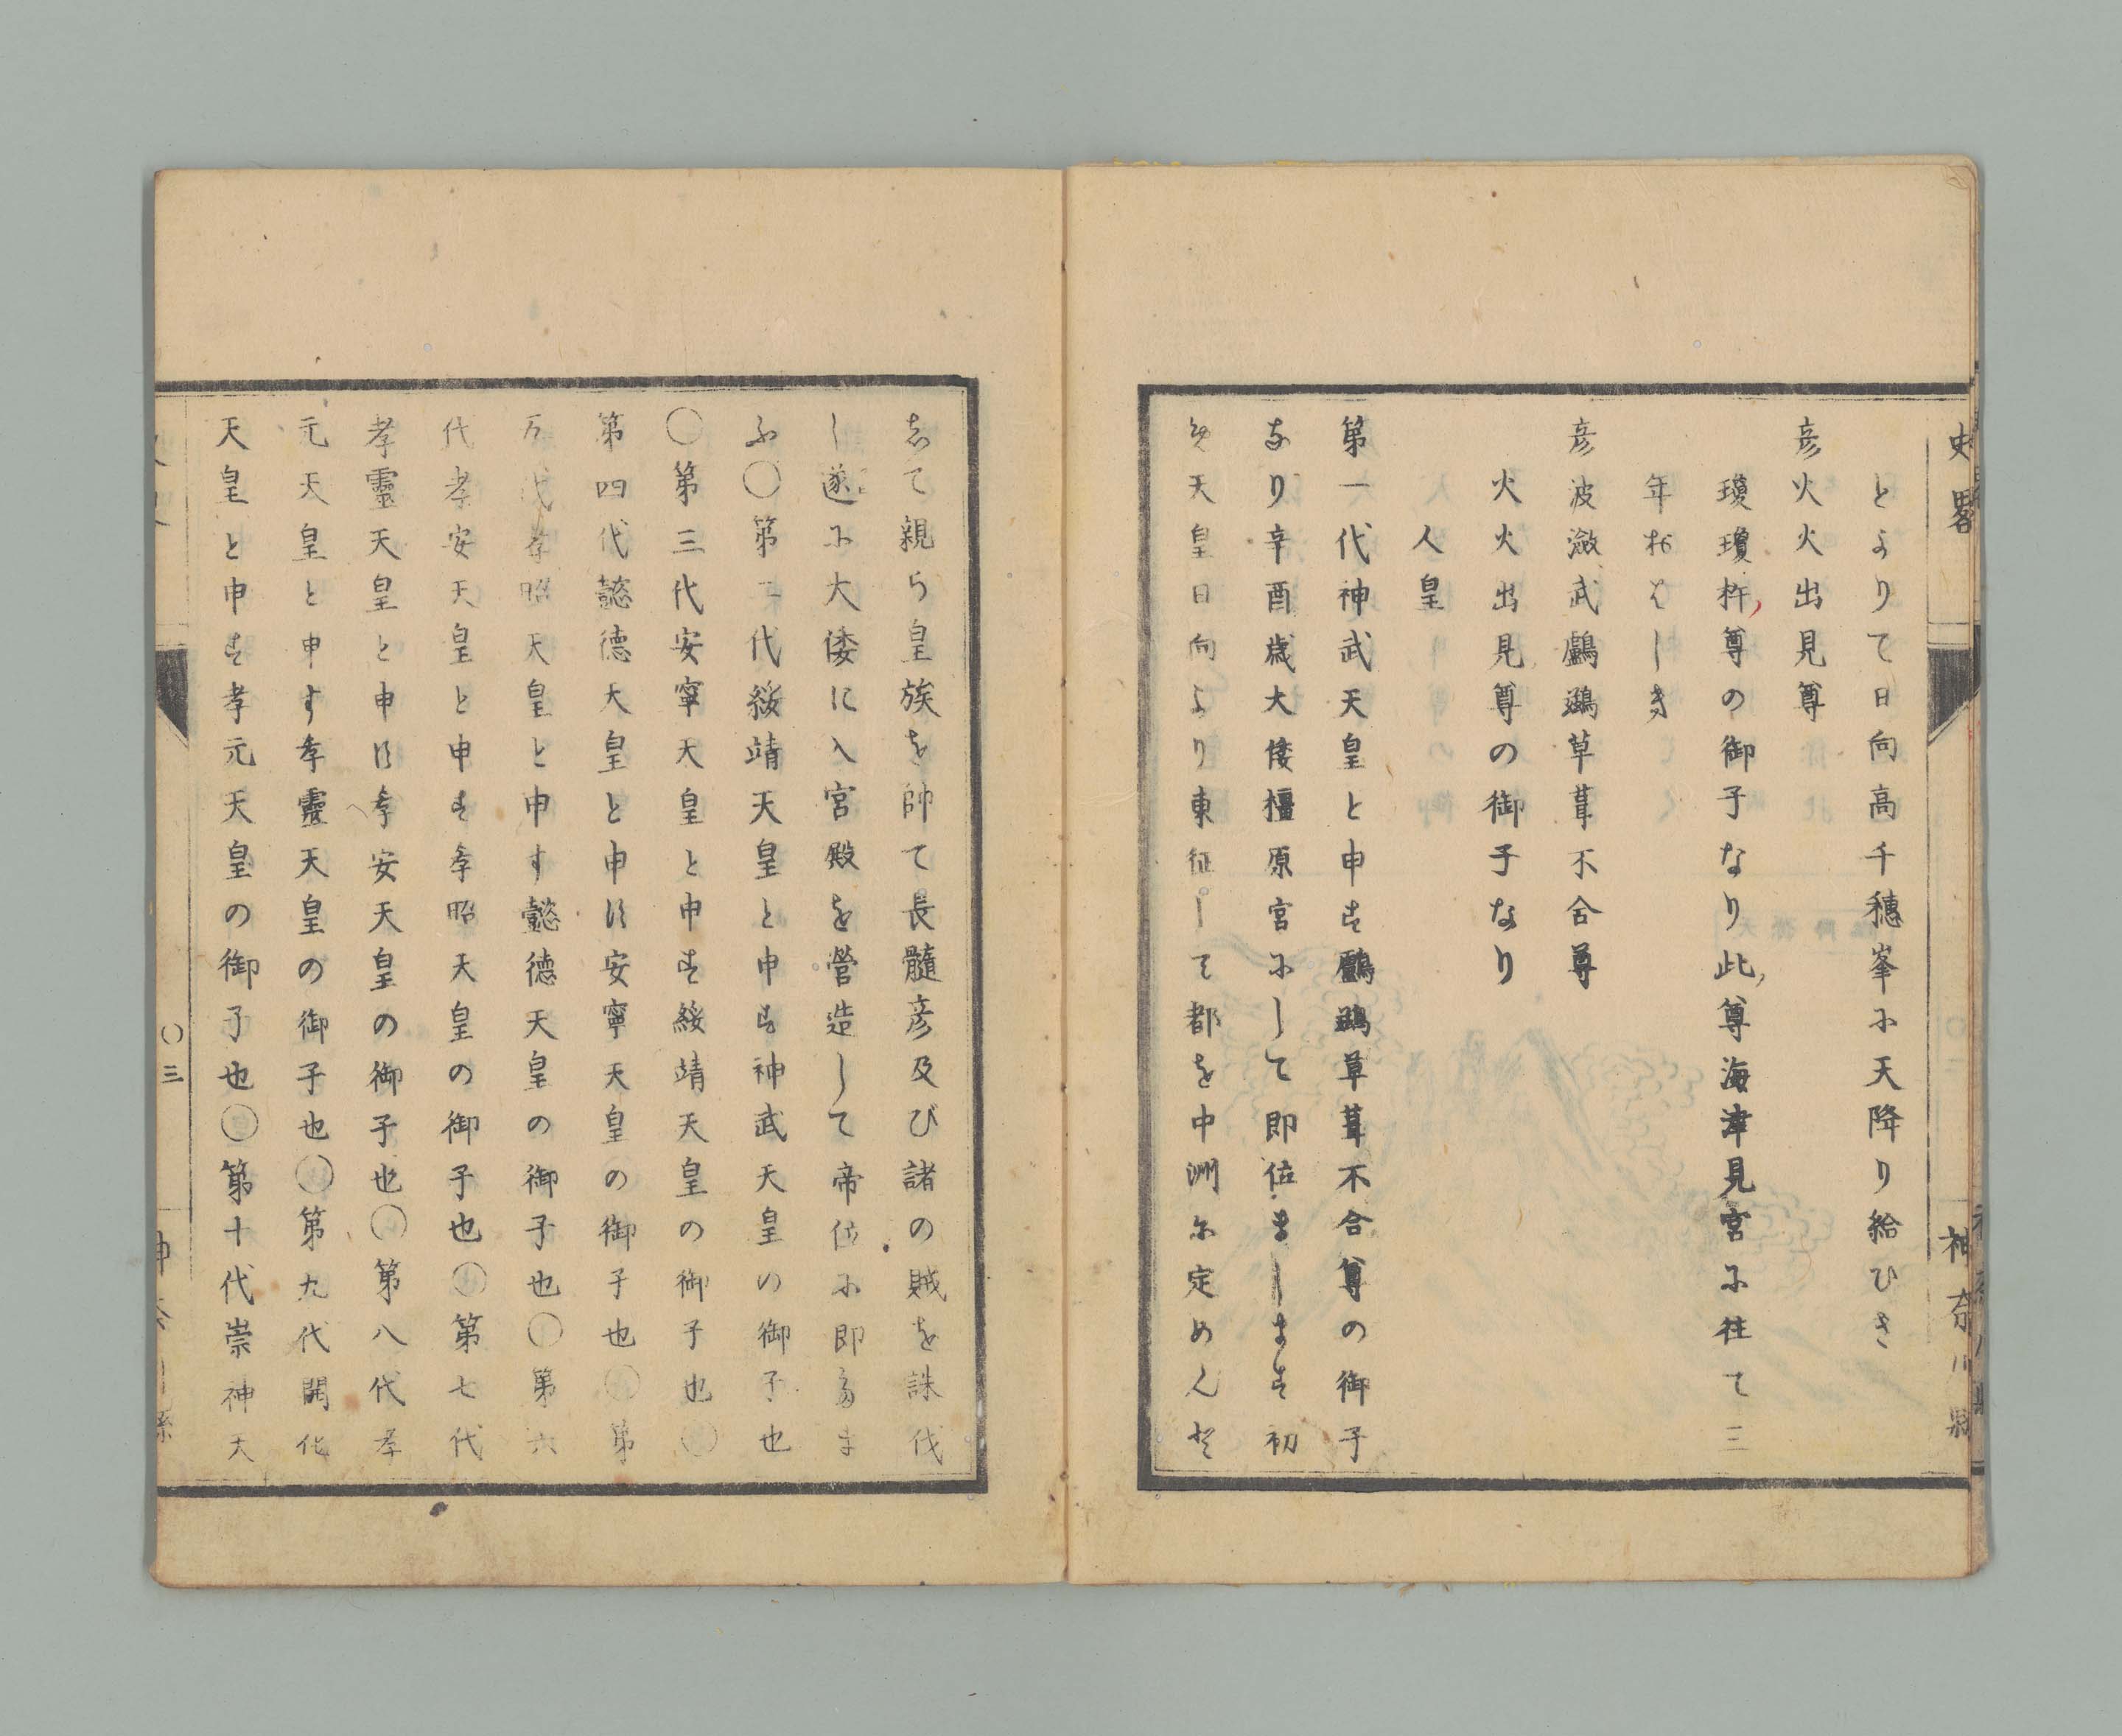 史畧
神奈川縣
とよりて日向高千穗峯に天降り給ひき
彦火火出見尊
瓊瓊杵尊の御子なり此尊海津見宮に往て三
年おはしき
彦波瀲武鸕鷀草葺不合尊
火火出見尊の御子なり
人皇
第一代神武天皇と申す鸕鷀草葺不合尊の御子
なり辛酉歳大倭橿原宮にして即位まします初
め天皇日向より東征して都を中洲に定めんと
志て親ら皇族を帥て長髓彦及び諸の賊を誅伐
し遂に大倭に入宮殿を營造して帝位に即給ま
ふ〇第二代綏靖天皇と申す神武天皇の御子也
〇第三代安寧天皇と申す綏靖天皇の御子也〇
第四代懿德天皇と申す安寧天皇の御子也〇第
五代孝昭天皇と申す懿德天皇の御子也〇第六
代孝安天皇と申す孝昭天皇の御子也〇第七代
孝靈天皇と申す孝安天皇の御子也〇第八代孝
元天皇と申す孝靈天皇の御子也〇第九代開化
天皇と申す孝元天皇の御子也〇第十代崇神天
〇三